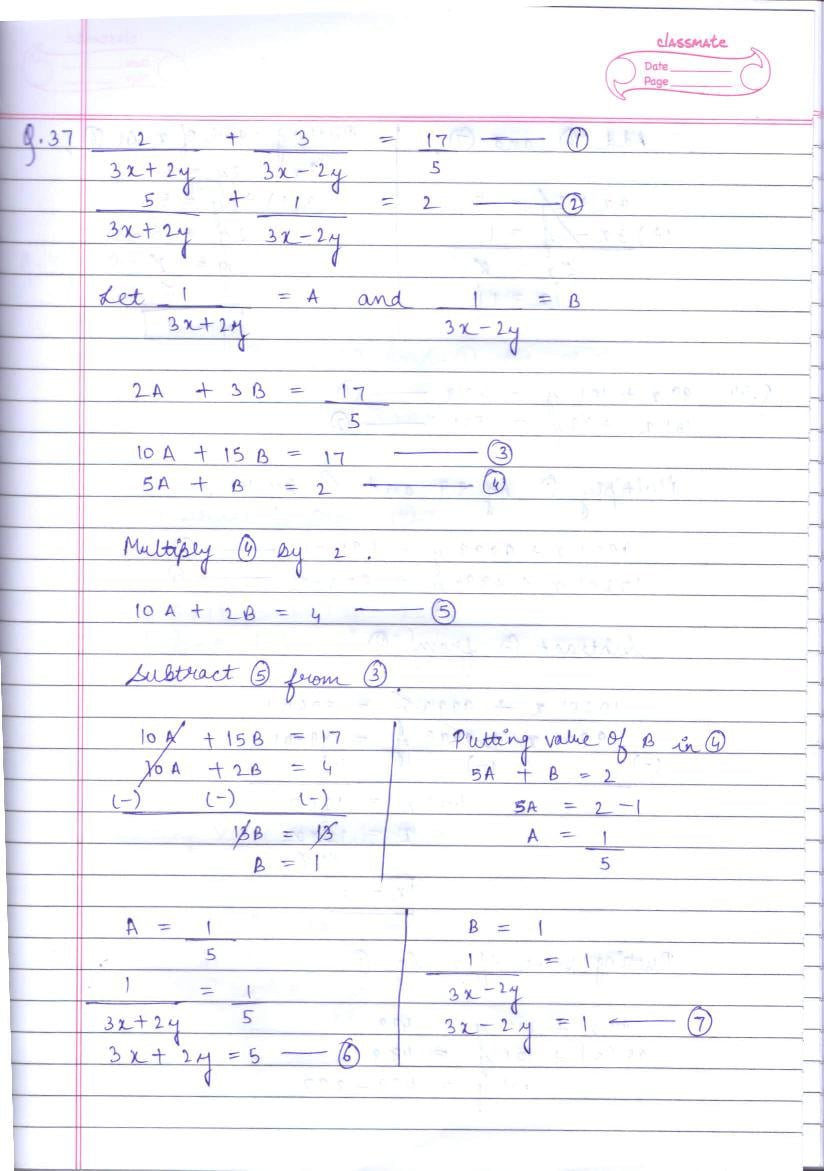 classmate
Date
Page
Q.37 2/(3x+2y) + 3/(3x-2y) = 17/5 — ①
5/(3x+2y) + 1/(3x-2y) = 2 — ②
Let 1/(3x+2y) = A and 1/(3x-2y) = B
2A + 3B = 17/5
10A + 15B = 17 — ③
5A + B = 2 — ④
Multiply ④ by 2.
10A + 2B = 4 — ⑤
Subtract ⑤ from ③.
10A + 15B = 17
10A + 2B = 4
(-) (-) (-)
13B = 13
B = 1
Putting value of B in ④
5A + B = 2
5A = 2 - 1
A = 1/5
A = 1/5
1/(3x+2y) = 1/5
3x + 2y = 5 — ⑥
B = 1
1/(3x-2y) = 1
3x - 2y = 1 — ⑦